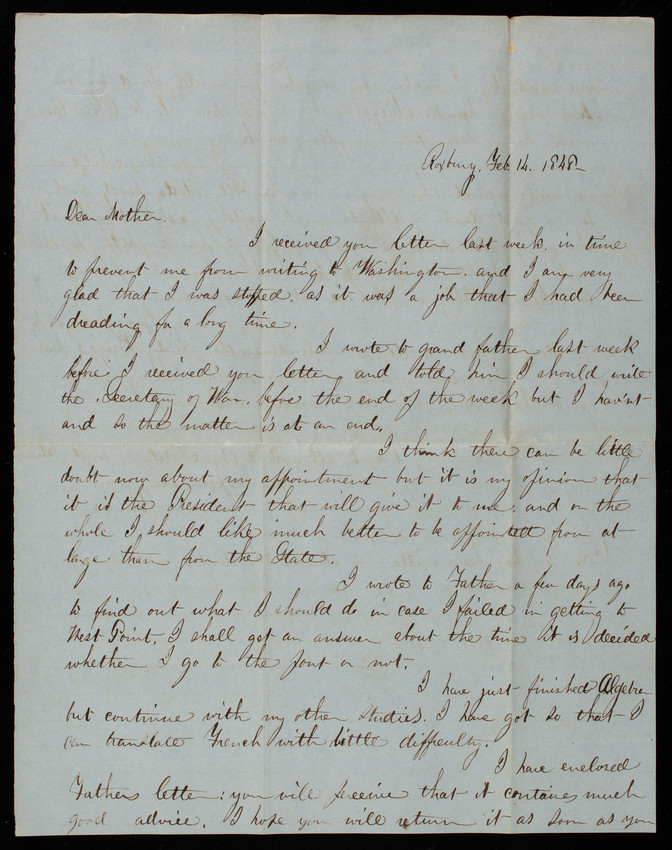 Roxbury, Feb. 14. 1848-
Dear Mother.
I received you letter last week. in time
to prevent me from writing to Washington. and I am very
glad that I was stopped. as it was a job that I had been
dreading for a long time.
I wrote to grand father last week
before I received you letter and told him I should write
the Secretary of War. before the end of the week but I hav'nt
and so the matter is at an end.
I think there can be little
doubt now about my appointment but it is my opinion that
it is the President that will give it to me. and on the
whole I, should like much better to be appointed from at
large than from the State.
I wrote to Father a few days ago
to find out what I should do in case I failed in getting to
West Point. I shall get an answer about the time it is decided
whether I go to the point or not.
I have just finished Algebra
but continue with my other studies. I have got so that I
can translate French with little difficulty.
I have enclosed
Fathers letter: you will perceive that it contains much
good advice. I hope you will return it as soon as you